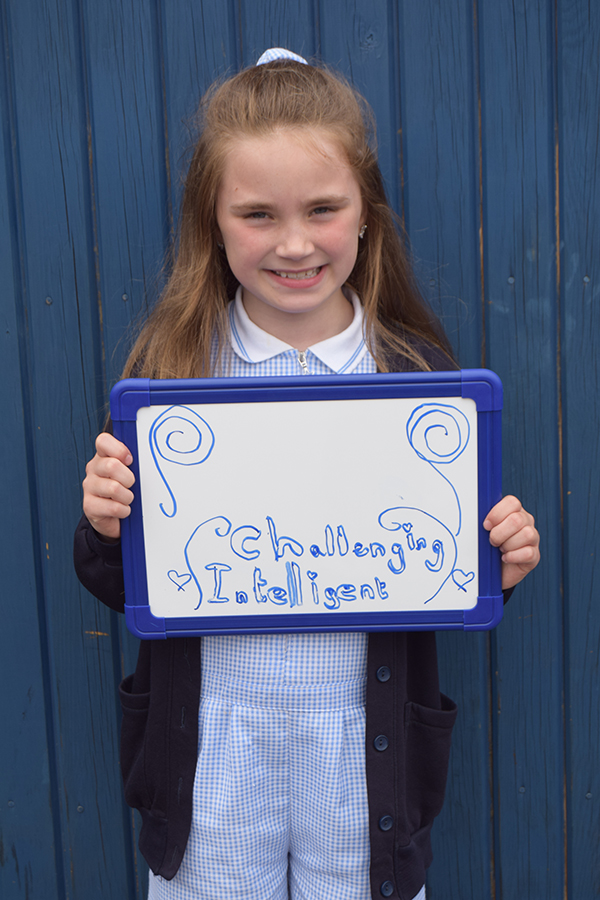 Challenging
Intelligent